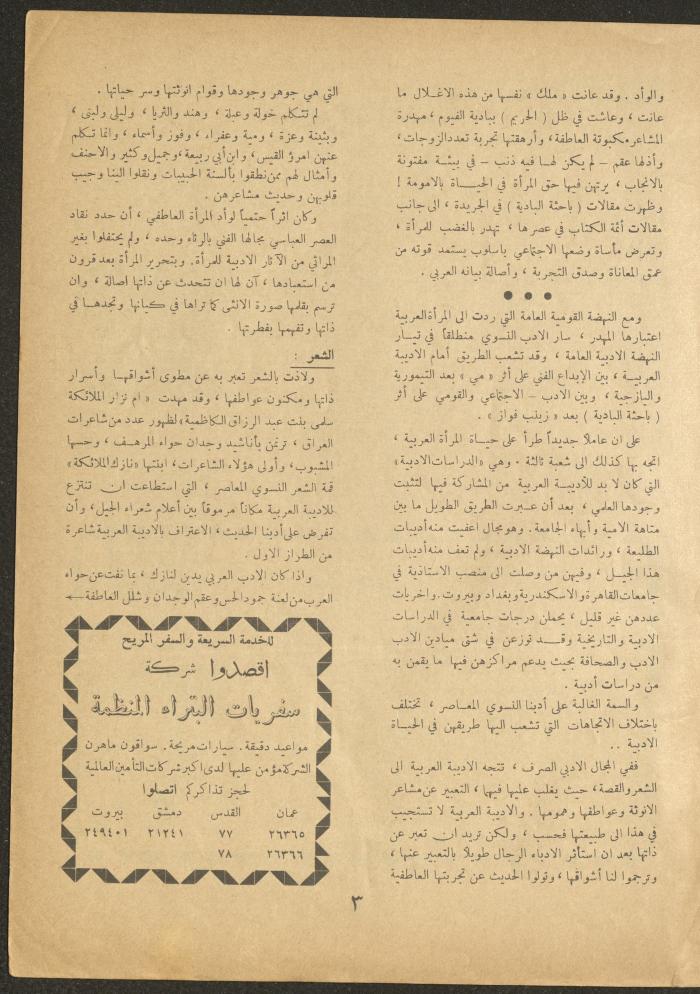 والوأد . وقد عانت « ملك » نفسها من هذه الاغـلال ما
عانت ، وعاشت في ظل ( الحريم ) ببادية الفيوم ، مهدرة
المشاعر مكبوتة العاطفة ، وأرهقتها تجربة تعدد الزوجات ،
وأذلها عقم – لم يكن لهـا فيه ذنب – في بيئـة مفتونة
بالانجاب ، يرتهن فيها حق المرأة في الحيـــاة بالامومة !
وظهرت مقالات ( باحثة البادية ) في الجريدة ، الى جانب
مقالات أئمة الكتاب في عصرها ، تهدر بالغضب للمرأة ،
وتعرض مأساة وضعها الاجتماعي باسلوب يستمد قوته من
عمق المعاناة وصدق التجربة ، وأصالة بيانه العربي .
● ● ●
ومع النهضة القومية العامة التي ردت الى المرأة العربية
اعتبارها المهدر ، سار الادب النسوي منطلقاً في تيـار
النهضة الادبية العامة ، وقد تشعب الطريق أمام الاديبة
العربيـة ، بين الابداع الفني على أثر « مي » بعد التيمورية
واليازجية ، وبين الادب – الاجتماعي والقومي على أثر
( باحثة البادية ) بعد « زينب فواز » .
على ان عاملاً جديداً طرأ على حيـاة المرأة العربية ،
اتجه بها كذلك الى شعبة ثالثة . وهي «الدراسات الادبية»
التي كان لا بد للأديبـة العربية من المشاركة فيها لتثبت
وجودها العلمي ، بعد أن عـبرت الطريق الطويل ما بين
متاهة الامية وأبهاء الجامعة . وهو مجال اعفيت منه أديبات
الطليعة ، ورائدات النهضة الادبية ، ولم تعف منه أديبات
هذا الجيـل ، وفيهن من وصلت الى منصب الاستاذية في
جامعات القاهرة والاسكندرية وبغداد وبيروت . واخريات
عددهن غير قليل ، يحملن درجات جامعية في الدراسات
الادبية والتاريخية وقـــد توزعن في شتى ميادين الادب
الادب والصحافة بحيث يدعم مراكزهن فيها ما يقمن به
من دراسات أدبية .
والسمة الغالبة على أدبنا النسوي المعـاصر ، تختلف
باختلاف الاتجاهات التي تشعب اليها طريقهن في الحيـاة
الادبية . .
ففي المجال الادبي الصرف ، تتجه الاديبة العربية الى
الشعر والقصة ، حيث يغلب عليها فيها ، التعبير عن مشاعر
الانوثة وعواطفها وهمومها . والاديبة العربية لا تستجيب
في هذا الى طبيعتها فحسب ، ولكن تريد ان تعبر عن
ذاتها بعد ان استأثر الادباء الرجال طويلاً بالتعبير عنها ،
وترجموا لنا أشواقها ، وتولوا الحديث عن تجربتها العاطفية
التي هي جوهر وجودها وقوام انوثتها وسر حياتها .
لم تتـكلم خولة وعبلة ، وهند والثريا ، وليلى ولبنى ،
وبثينة وعزة ، ومية وعفراء ، وفوز وأسماء ، وانما تـكلم
عنهن امرؤ القيس ، وابن أبي ربيعة ، وجميل وكثير والاحنف
وأمثال لهم ممن نطقوا بألسنة الحبيبات ونقلوا الينا وجيب
قلوبهن وحديث مشاعرهن .
وكان اثراً حتمياً لوأد المرأة العاطفي ، أن حدد نقاد
العصر العباسي مجالها الفني بالرثاء وحده ، ولم يحتفلوا بغير
المراثي من الآثار الادبية للمرأة . وبتحرير المرأة بعد قرون
من استعبادها ، آن لها ان تتحدث عن ذاتها اصالة ، وان
ترسم بقلمها صورة الانثى كما تراها في كيانها وتجدهـا في
ذاتها وتفهمها بفطرتها .
الشعر :
ولاذت بالشعر تعبر به عن مطوى أشواقهـا وأسرار
ذاتها ومكنون عواطفها ، وقد مهدت « ام نزار الملائكة
سلمى بنت عبد الرزاق الكاظمية » لظهور عدد من شاعرات
العراق ، ترنمن بأناشيد وجدان حواء المرهـف ، وحسها
المشبوب ، وأولى هؤلاء الشاعرات ، ابنتها «نازك الملائكة»
قمة الشعر النسوي المعاصر ، التي استطاعت ان تنتزع
للاديبة العربية مكاناً مرموقاً بين أعلام شعراء الجيل ، وأن
تفرض على أدبنا الحديث ، الاعتراف بالاديبة العربية شاعرة
من الطراز الاول .
واذا كان الادب العربي يدين لنازك ، بما نفت عن حواء
العرب من لعنة جمود الحس وعقم الوجدان وشلل العاطفة ←
للخدمة السريعة والسفر المريح
اقصدوا شركة
سفريات البتراء المنظمة
مواعيد دقيقة . سيارات مريحة . سواقون ماهرن
الشركة مؤمن عليها لدى اكبر شركات التأمين العالمية
لحجز تذاكركم اتصلوا
عمان القدس دمشق بيروت
٢٦٣٦٥ ٧٧ ٢١٢٤١ ٢٤٩٤٠١
٢٦٣٦٦ ٧٨
٣